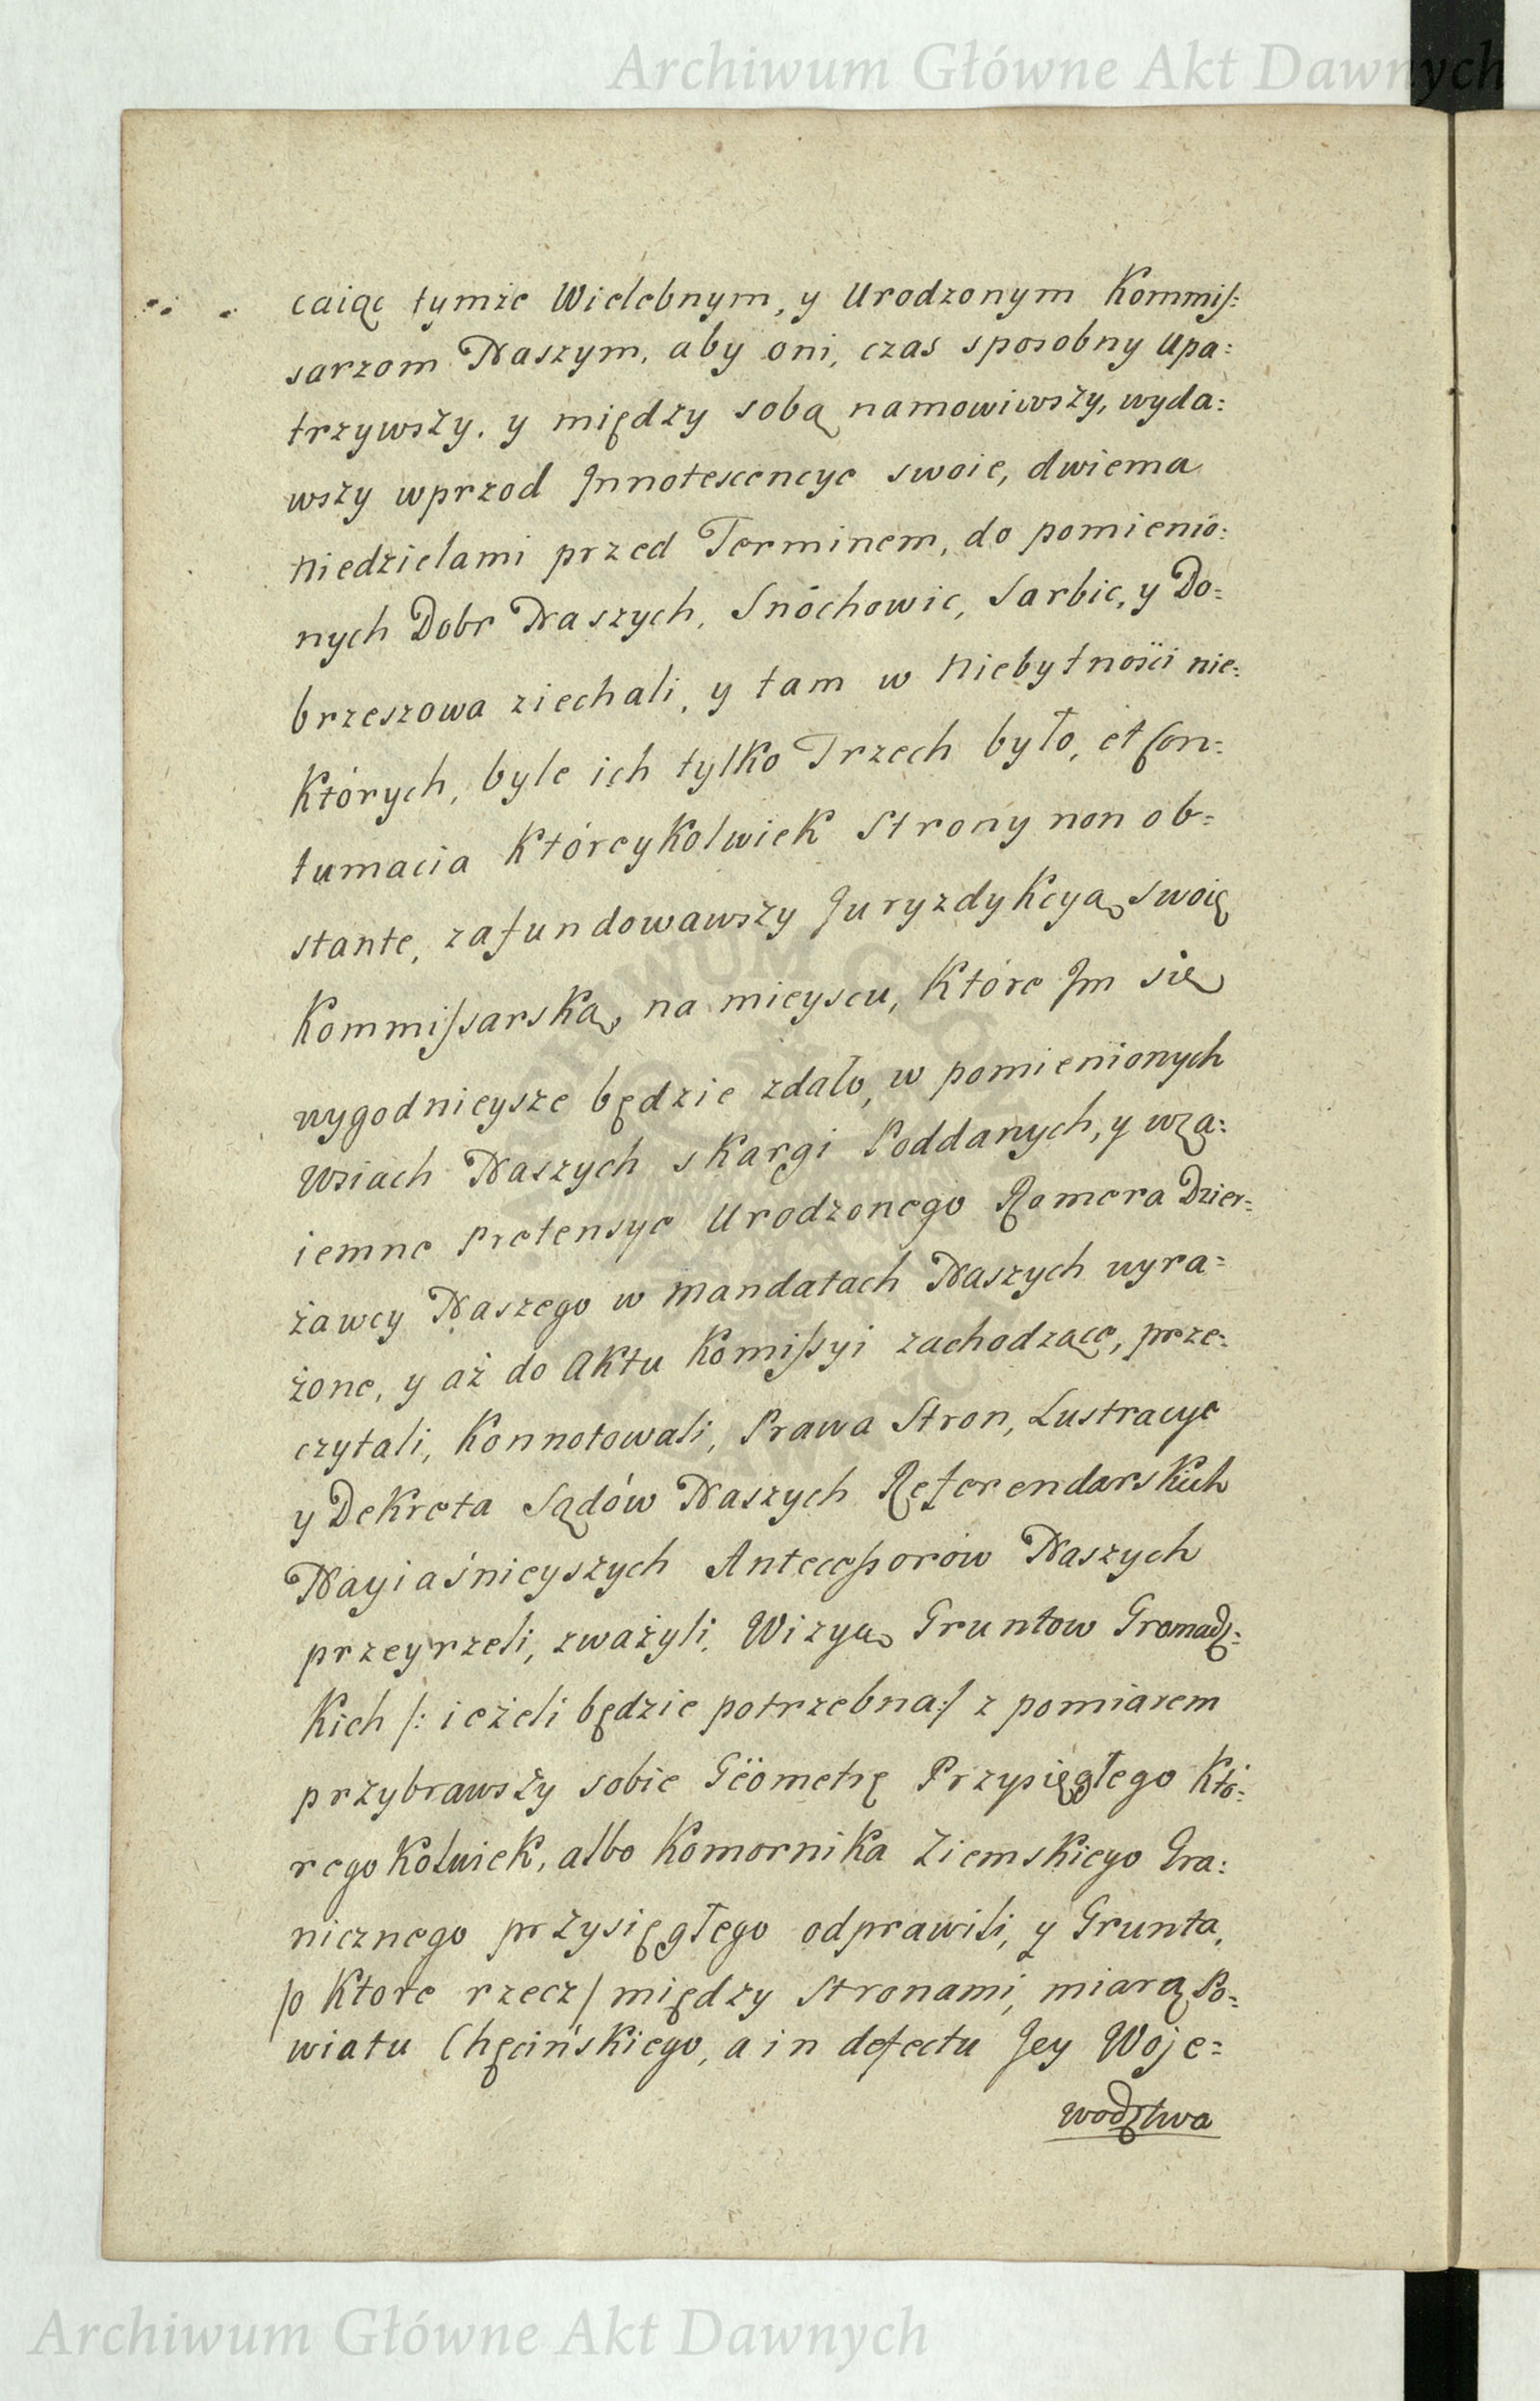 Archiwum Główne Akt Dawnych
caiąc tymże Wielebnym, y Urodzonym Kommis:
sarzom Naszym, aby oni, czas sposobny upa:
trzywszy, y między sobą namowiwszy, wyda:
wszy wprzod Innotescencye swoie, dwiema
Niedzielami przed Terminem, do pomienio:
nych Dobr Naszych, Snochowic, Sarbic, y Do:
brzeszowa ziechali, y tam w Niebytności nie:
których, byle ich tylko Trzech było, et Con:
tumacia któreykolwiek Strony non ob:
stante, zafundowawszy Juryzdykcyą swoię
Kommissarską, na mieyscu, które Im się
wygodnieysze będzie zdało, w pomienionych
Wsiach Naszych skargi Poddanych, y wza:
iemne Pretensye Urodzonego Romera Dzier:
żawcy Naszego w Mandatach Naszych wyra:
żone, y aż do Aktu Komissyi zachodzące, prze:
czytali, konnotowali, Prawa Stron, Lustracye
y Dekreta Sądów Naszych Referendarskich
Nayiaśnieyszych Antecessorow Naszych
przeyrzeli, zważyli, Wizyą Gruntow Gromadz:
kich /: ieżeli będzie potrzebna :/ z pomiarem
przybrawszy sobie Geometrę Przysięgłego któ:
regokolwiek, albo Komornika Ziemskiego Gra:
nicznego przysięgłego odprawili, y Grunta,
/o ktore rzecz/ między Stronami, miarą Po:
wiatu Chęcińskiego, a in defectu Jey Woje:
wodztwa
Archiwum Główne Akt Dawnych